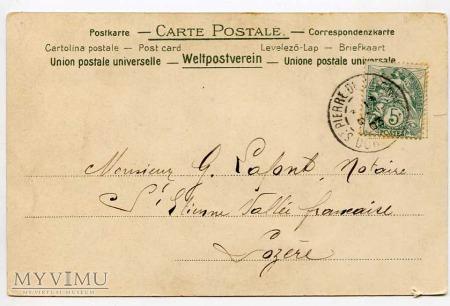 Postkarte — CARTE POSTALE. — Correspondenzkarte
Cartolina postale — Post card Levelező-Lap — Briefkaart
Union postale universelle — Weltpostverein — Unione postale universale
ST PIERRE
5c
POSTES
Monsieur G. Lafont, Notaire
St Etienne Vallée française
Lozère
MYVIMU
MY VIRTUAL MUSEUM